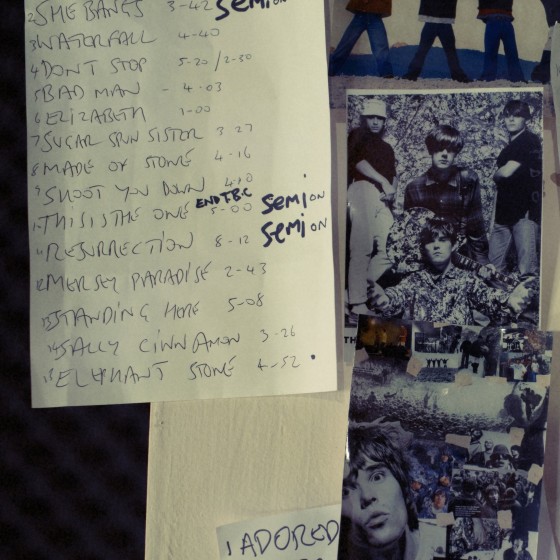 2 SHE BANGS 3-42 SEMi ON
3 WATERFALL 4-40
4 DONT STOP 5-20/2-30
5 BAD MAN - 4-03
6 ELIZABETH 1-00
7 SUGAR SPUN SISTER 3 27
8 MADE OF STONE 4-16
9 SHOOT YOU DOWN 4-10
10 THIS IS THE ONE END T.B.C 5-00 SEMi ON
11 RESURRECTION 8-12 SEMi ON
12 MERSEY PARADISE 2-43
13 STANDING HERE 5-08
14 SALLY CINNAMON 3-26
15 ELEPHANT STONE 4-52 .
TH
I ADORED